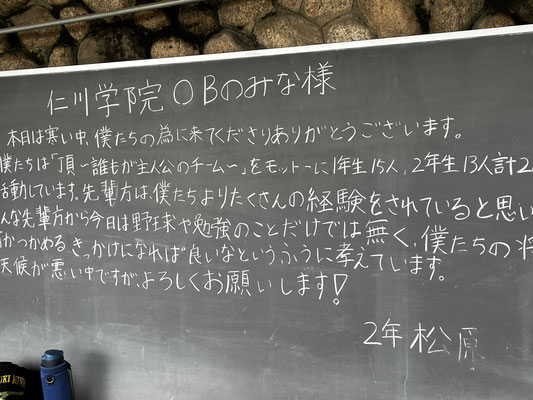 仁川学院OBのみな様
本日は寒い中、僕たちの為に来てくださりありがとうございます。
僕たちは「頂〜誰もが主人公のチーム〜」をモットーに1年生15人,2年生13人計2
活動しています。先輩方は、僕たちよりたくさんの経験をされていると思い
んな先輩方から今日は野球や勉強のことだけでは無く、僕たちの将
がつかめるきっかけになれば良いなというふうに考えています。
天候が悪い中ですが、よろしくお願いします!
2年 松原